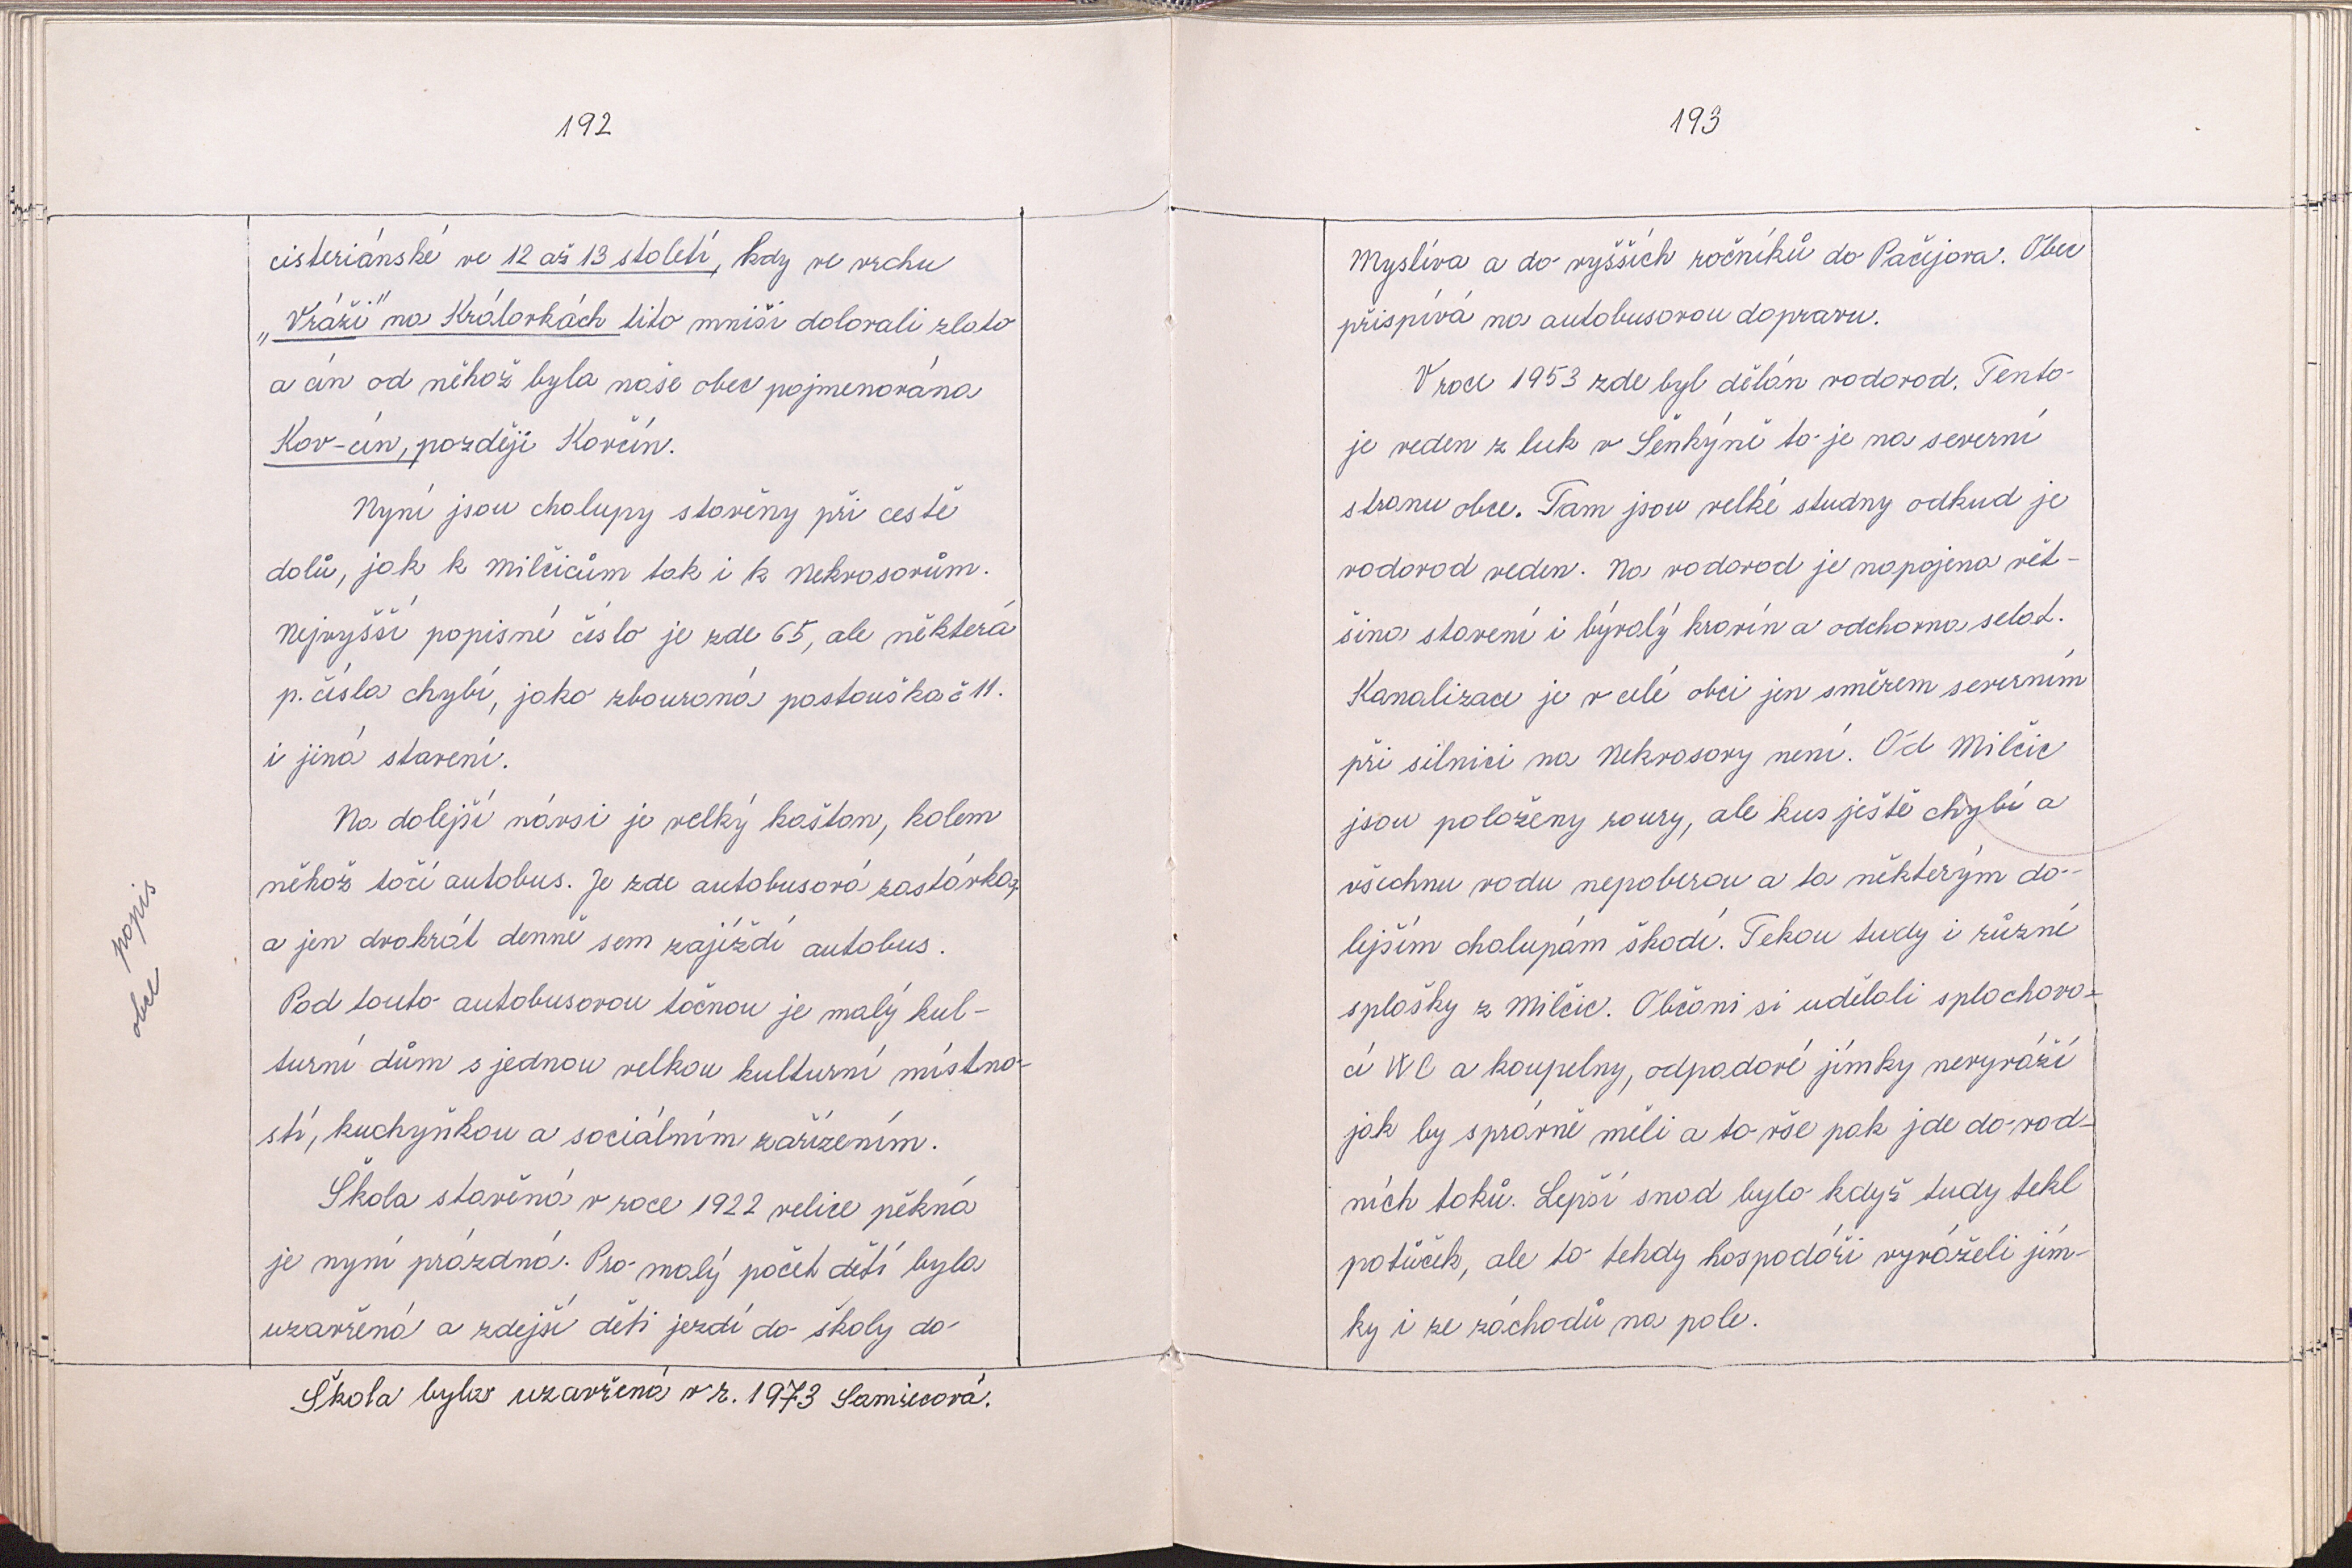 192
cisteriánské ve 12 až 13 století, kdy ve vrchu
„Vráži" na Královkách tito mniši dolovali zlato
a cín od něhož byla naše obec pojmenována
Kov-cín, později Kovčín.
Nyní jsou chalupy stavěny při cestě
dolů, jak k Milčicům tak i k Nekvasovům.
Nejvyšší popisné číslo je zde 65, ale některá
p. čísla chybí, jako zbouraná pastouška č 11.
i jiná stavení.
Na dolejší návsi je velký kaštan, kolem
něhož točí autobus. Je zde autobusová zastávka,
a jen dvakrát denně sem zajíždí autobus.
Pod touto autobusovou točnou je malý kul-
turní dům s jednou velkou kulturní místno-
stí, kuchyňkou a sociálním zařízením.
Škola stavěná v roce 1922 velice pěkná
je nyní prázdná. Pro malý počet dětí byla
uzavřená a zdejší děti jezdí do školy do
Škola byla uzavřená v r. 1973 Samcová.
popis
obce
193
Myslíva a do vyšších ročníků do Pačejova. Obec
přispívá na autobusovou dopravu.
V roce 1953 zde byl dělán vodovod. Tento
je veden z luk v Senkýně to je na severní
stranu obce. Tam jsou velké studny odkud je
vodovod veden. Na vodovod je napojena vět-
šina stavení i bývalý kravín a odchovna selat.
Kanalizace je v celé obci jen směrem severním
při silnici na Nekvasovy není. Od Milčic
jsou položeny roury, ale kus ještě chybí a
všechnu vodu nepoberou a to některým do-
lejším chalupám škodí. Tekou tudy i různé
splašky z Milčic. Občani si udělali splachova-
cí WC a koupelny, odpadové jímky nevyváží
jak by správně měli a to vše pak jde do vod-
ních toků. Lepší snad bylo když tudy tekl
potůček, ale to tehdy hospodáři vyváželi jím-
ky i ze záchodů na pole.